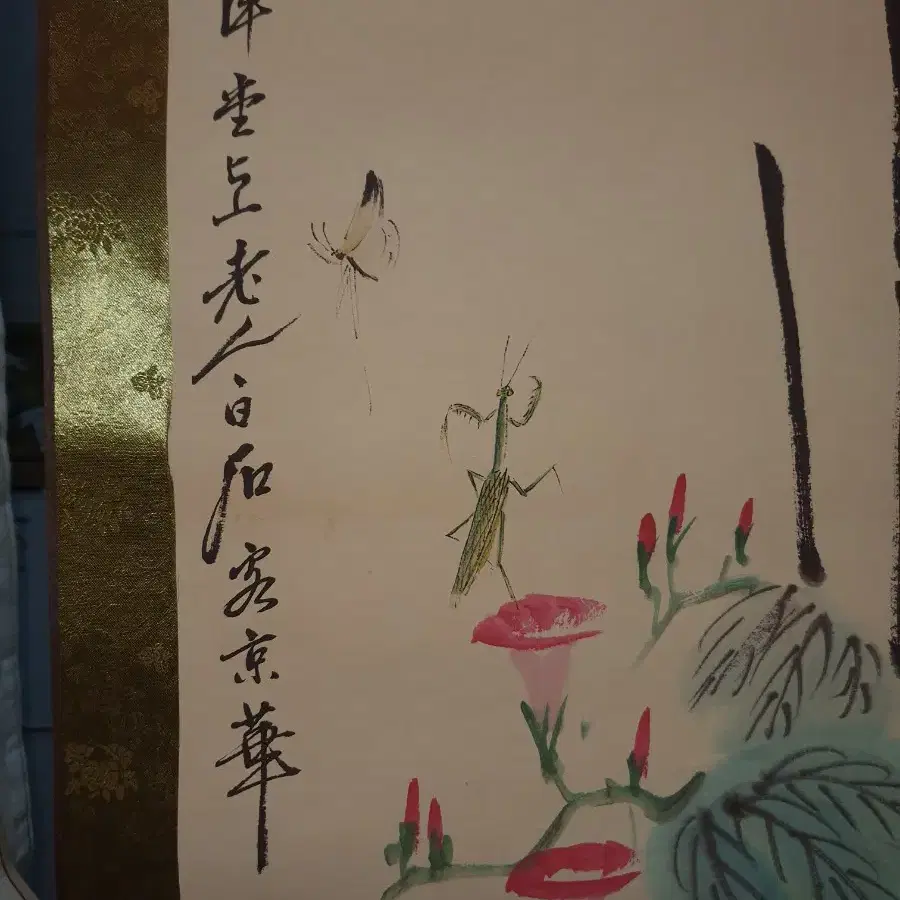 堂上老人白石客京華